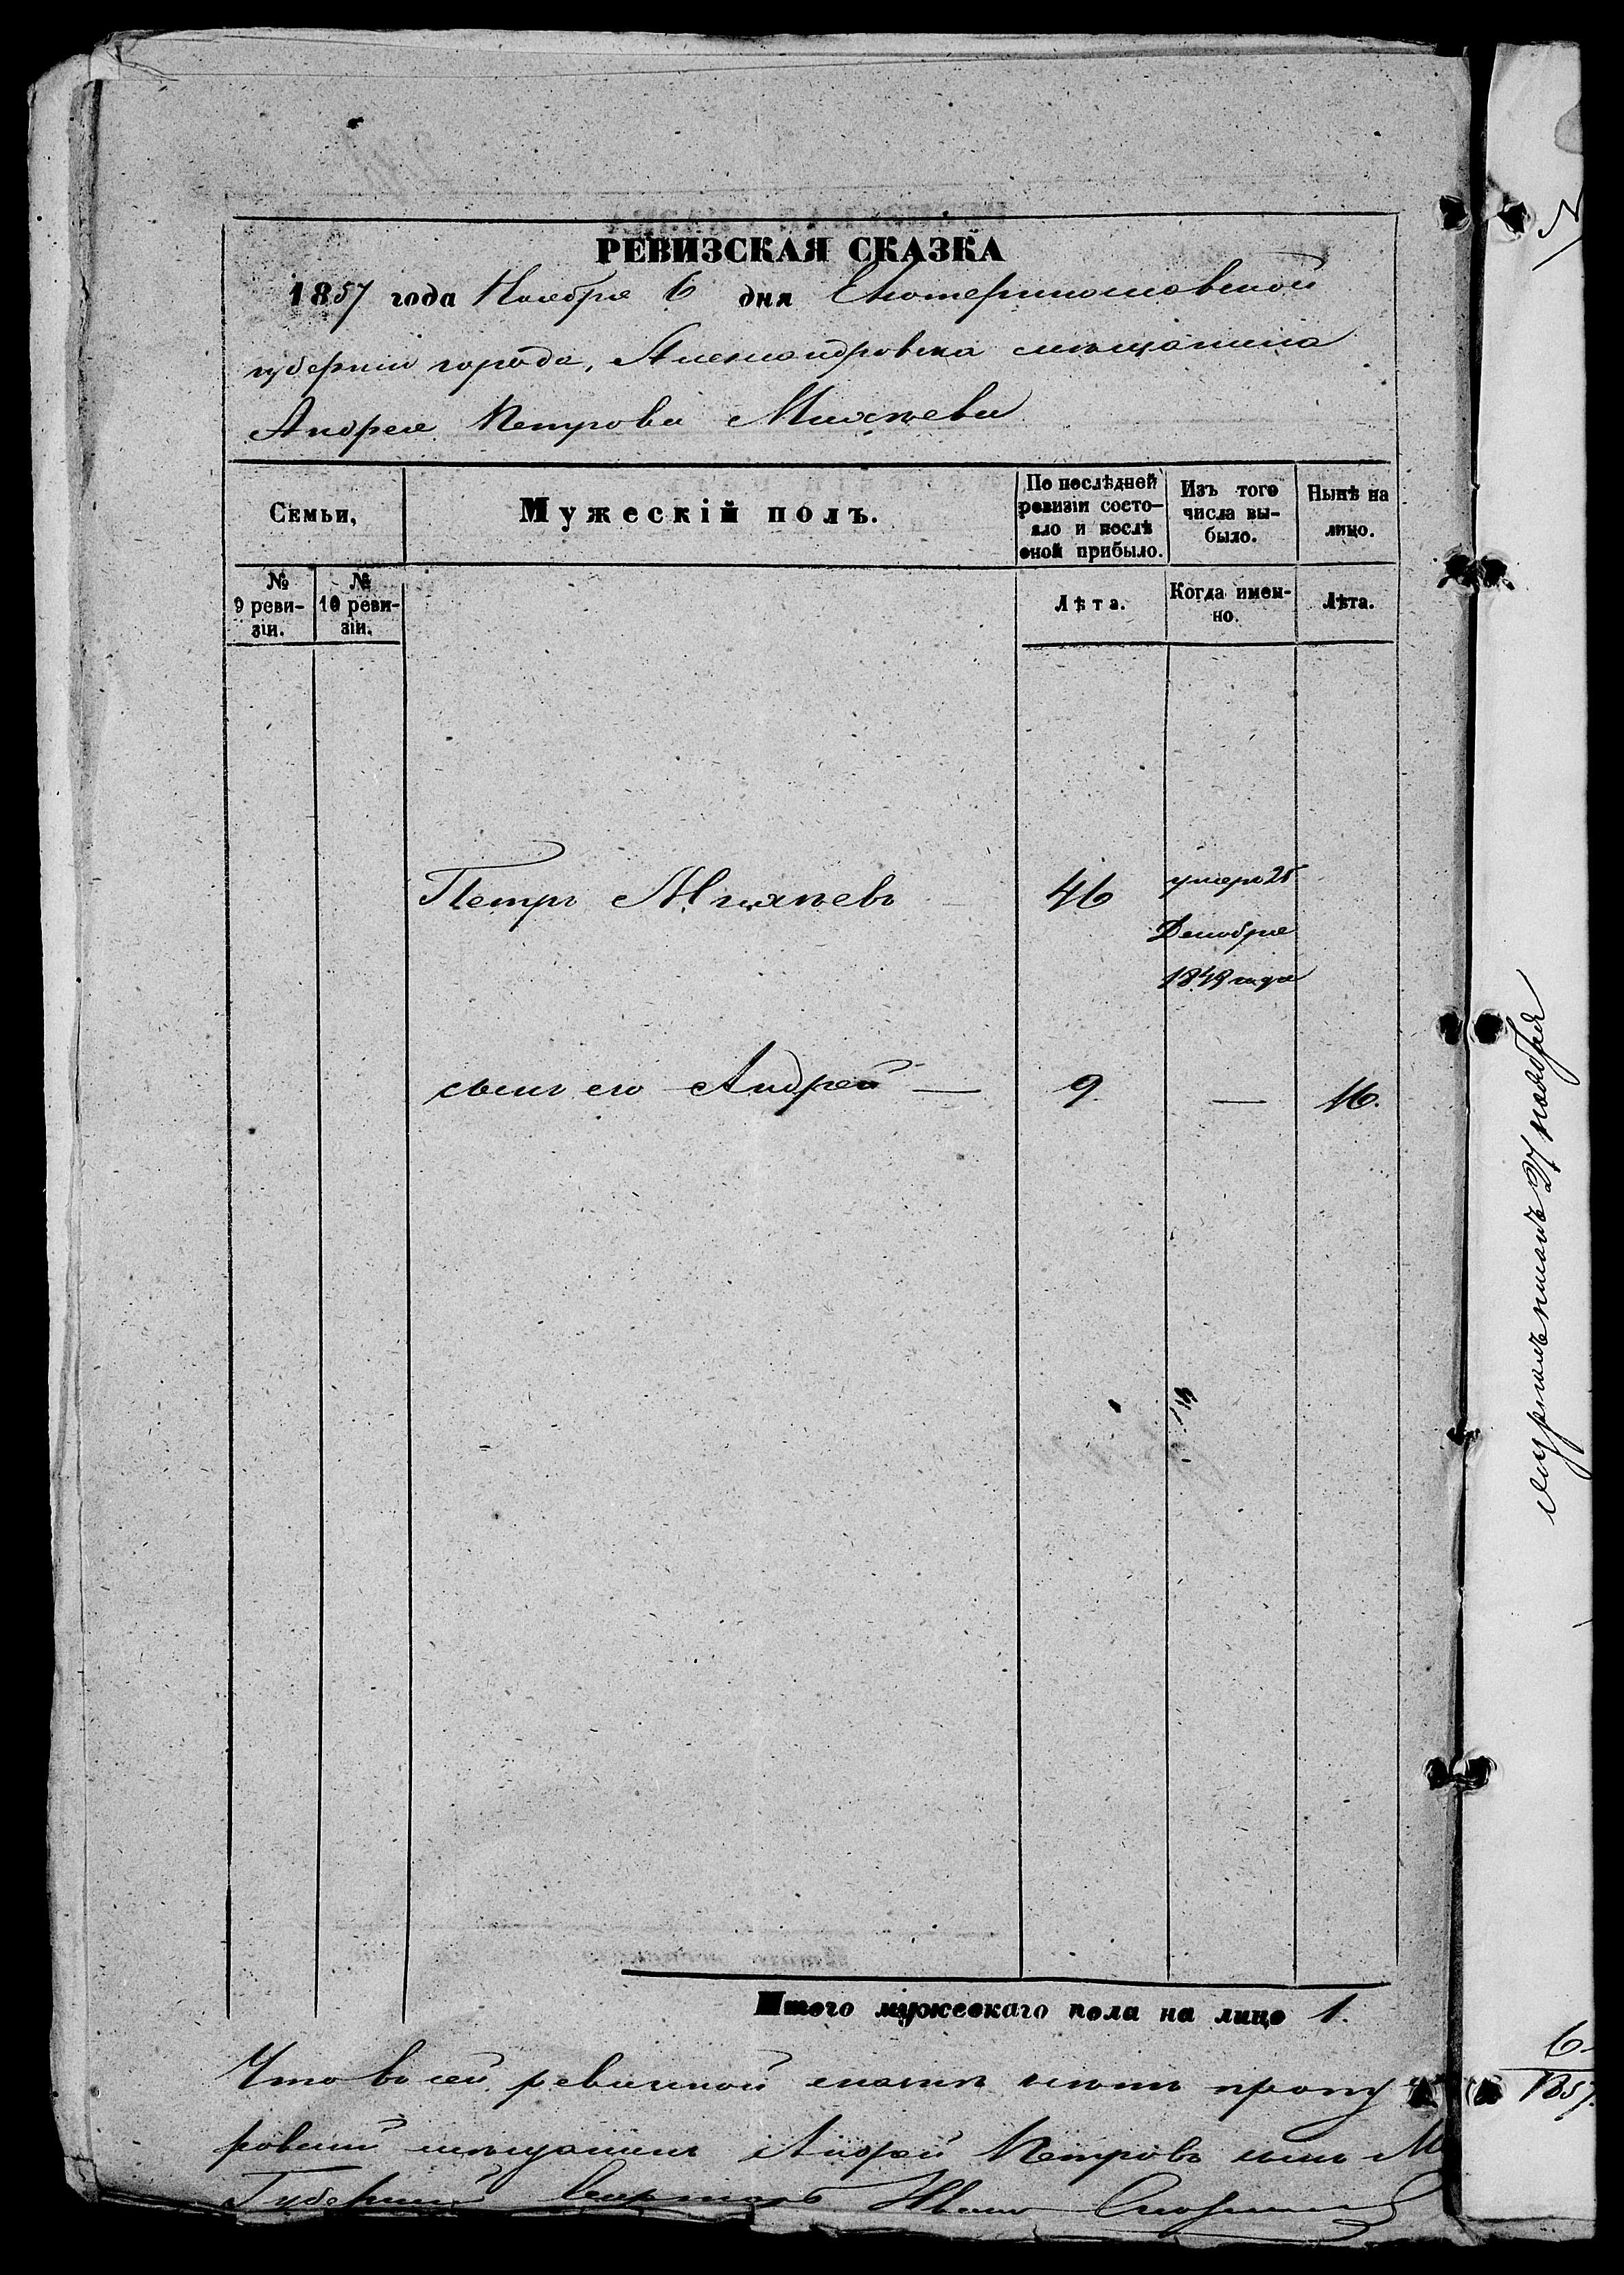 РЕВИЗСКАЯ СКАЗКА
1857 года Ноября 6 дня Екатеринославской
губернии города, Александровска мѣщанина
Андрея Петрова Михѣева
Семьи,
Мужескій полъ.
По послѣдней ревизіи состо-
яло и послѣ
оной прибыло.
Изъ того
числа вы-
было.
Нынѣ на
лицо.
№
9 реви-
зіи.
№
10 реви-
зіи.
Лѣта.
Когда имен-
но.
Лѣта.
Петръ Михѣевъ 46 умеръ 25
Декабря
1849 года
сынъ его Андрей — 9 — 16.
Итого мужескаго пола на лицо 1.
Что въ сей ревизской сказкѣ нѣтъ пропу
ровскій мѣщанинъ Андрей Петровъ сынъ М
Губерніи Иванъ
27 ноября
6
1857.